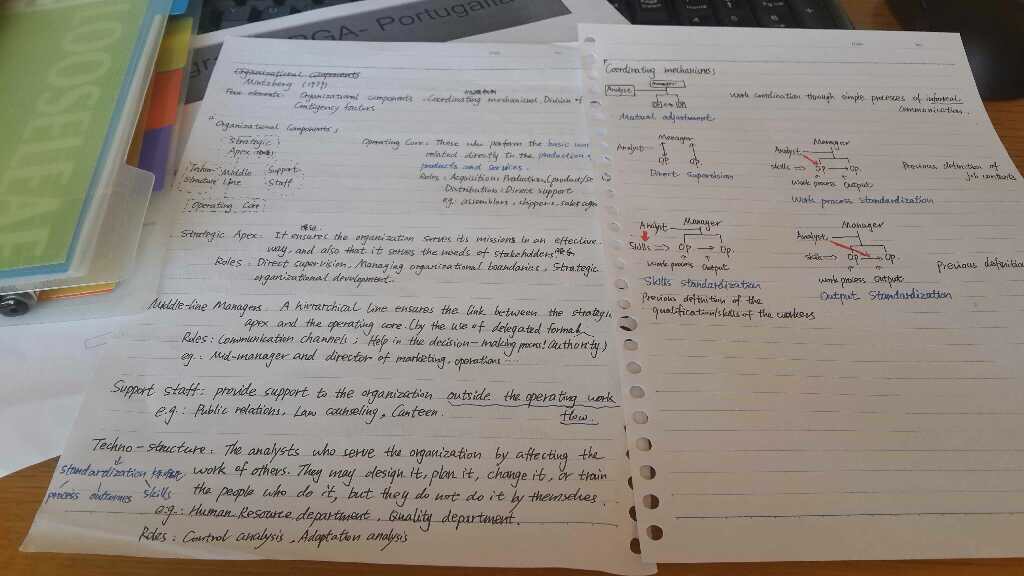 LOOSELEAF
RGA- Portugália
Organizational Components
Mintzberg (1979)
Four elements: Organizational components, Coordinating mechanisms, Division of
Contigency factors
Organizational Components:
Strategic
Apex
Techno- Middle Support
Structure Line Staff
Operating Core
Operating Core: Those who perform the basic work
related directly to the production o
products and services.
Roles: Acquisition; Production;
Distribution; Direct support
eg: assemblers, shippers, sales agen
Strategic Apex: It ensures the organization serves its missions in an effective
way, and also that it serves the needs of stakeholders
Roles: Direct supervision, Managing organizational boundaries, Strategic
organizational development.
Middle-line Managers: A hierarchical line ensures the link between the strategic
apex and the operating core. (by the use of delegated formal
Roles: Communication channels; Help in the decision-making process! authority)
eg.: Mid-manager and director of marketing, operations...
Support staff: provide support to the organization outside the operating work
flow.
e.g.: Public relations, Law counseling, Canteen.
Techno-structure: The analysts who serve the organization by affecting the
standardization
work of others. They may design it, plan it, change it, or train
process outcomes skills
the people who do it, but they do not do it by themselves.
e.g.: Human Resource department, Quality department.
Roles: Control analysis, Adaptation analysis
Coordinating mechanisms:
Manager
Analyst
Mutual adjustment
work coordination through simple processes of informal
communication.
Manager
Analyst
Op Op.
Direct Supervision
Manager
Analyst
Skills ⇒ Op → Op.
work process Output
Work process Standardization
Previous definition of
job contents
Analyst Manager
Skills ⇒ Op → Op.
work process output
Skills standardization
Previous definition of the
qualification/skills of the workers
Manager
Analyst
Skills ⇒ Op → Op.
work process Output
Output Standardization
Previous definition